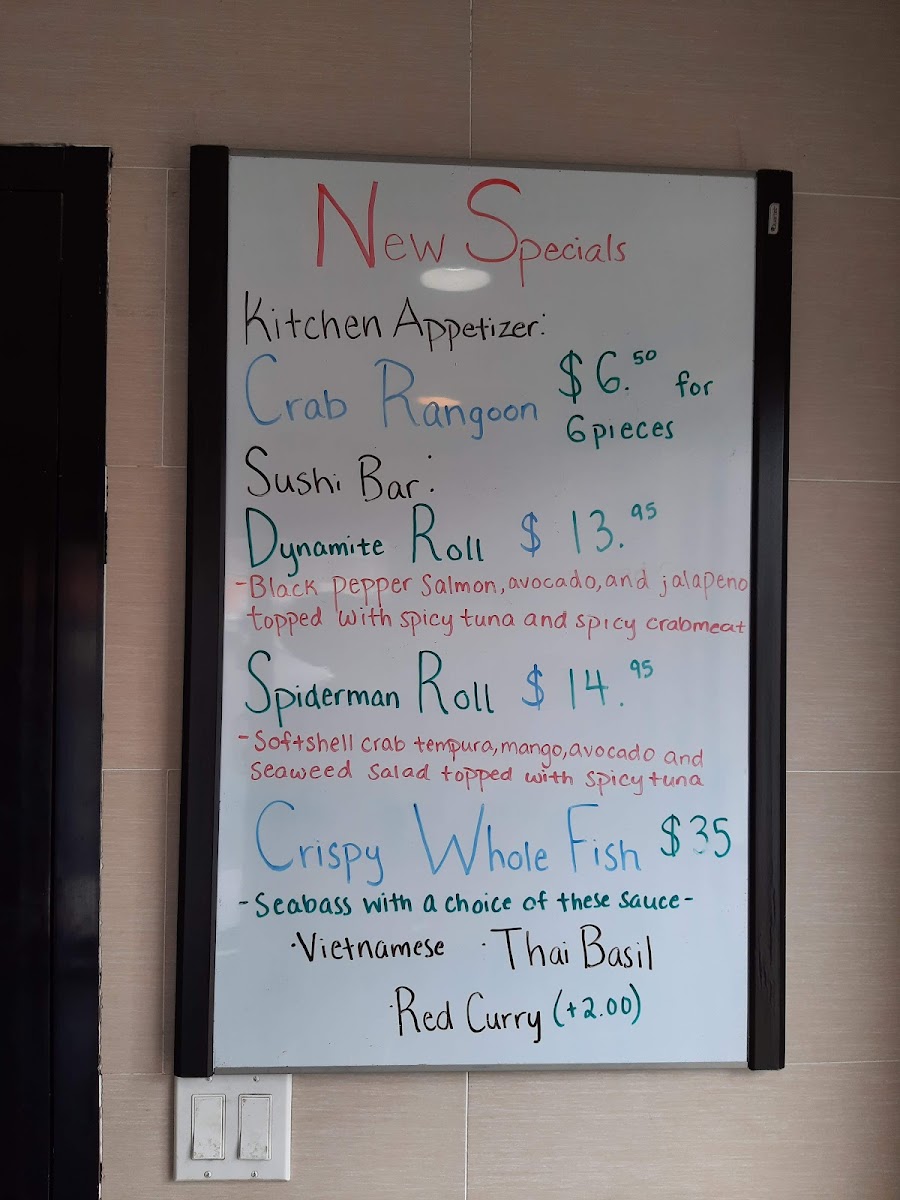 New Specials
Kitchen Appetizer:
Crab Rangoon $6.50 for
6 pieces
Sushi Bar:
Dynamite Roll $ 13.95
-Black pepper salmon, avocado, and jalapeno
topped with spicy tuna and spicy crabmeat
Spiderman Roll $ 14.95
-Softshell crab tempura, mango, avocado and
seaweed salad topped with spicy tuna
Crispy Whole Fish $35
-Seabass with a choice of these sauce-
·Vietnamese ·Thai Basil
·Red Curry (+2.00)